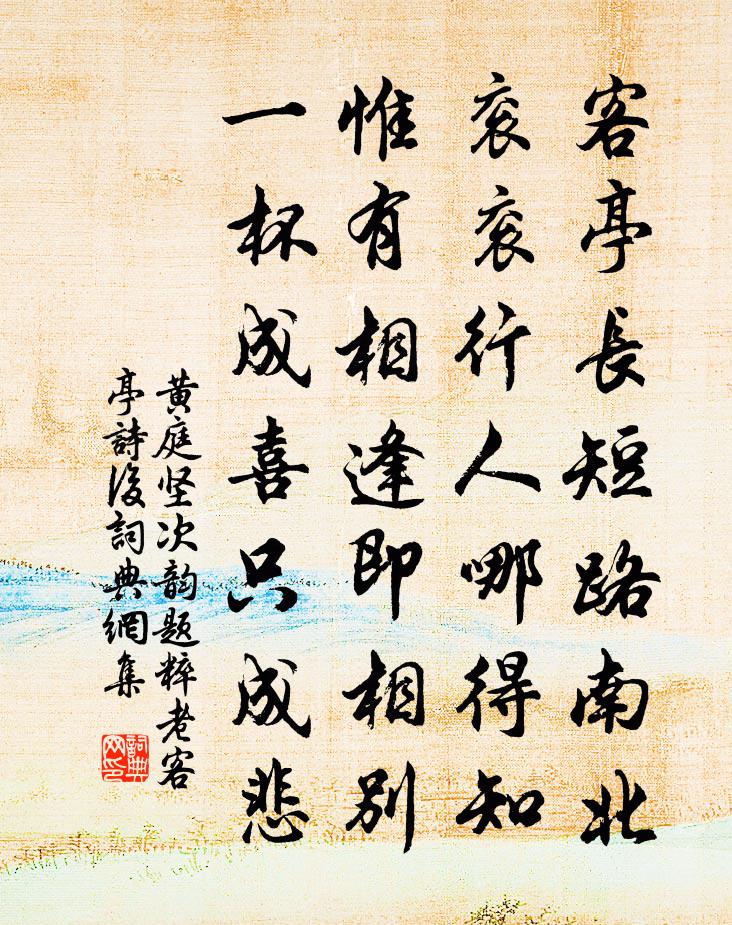 客亭長短路南北
衮衮行人哪得知
惟有相逢即相别
一杯成喜只成悲
黄庭坚次韵题粹老客
亭詩後詞典網集
詞典
网印